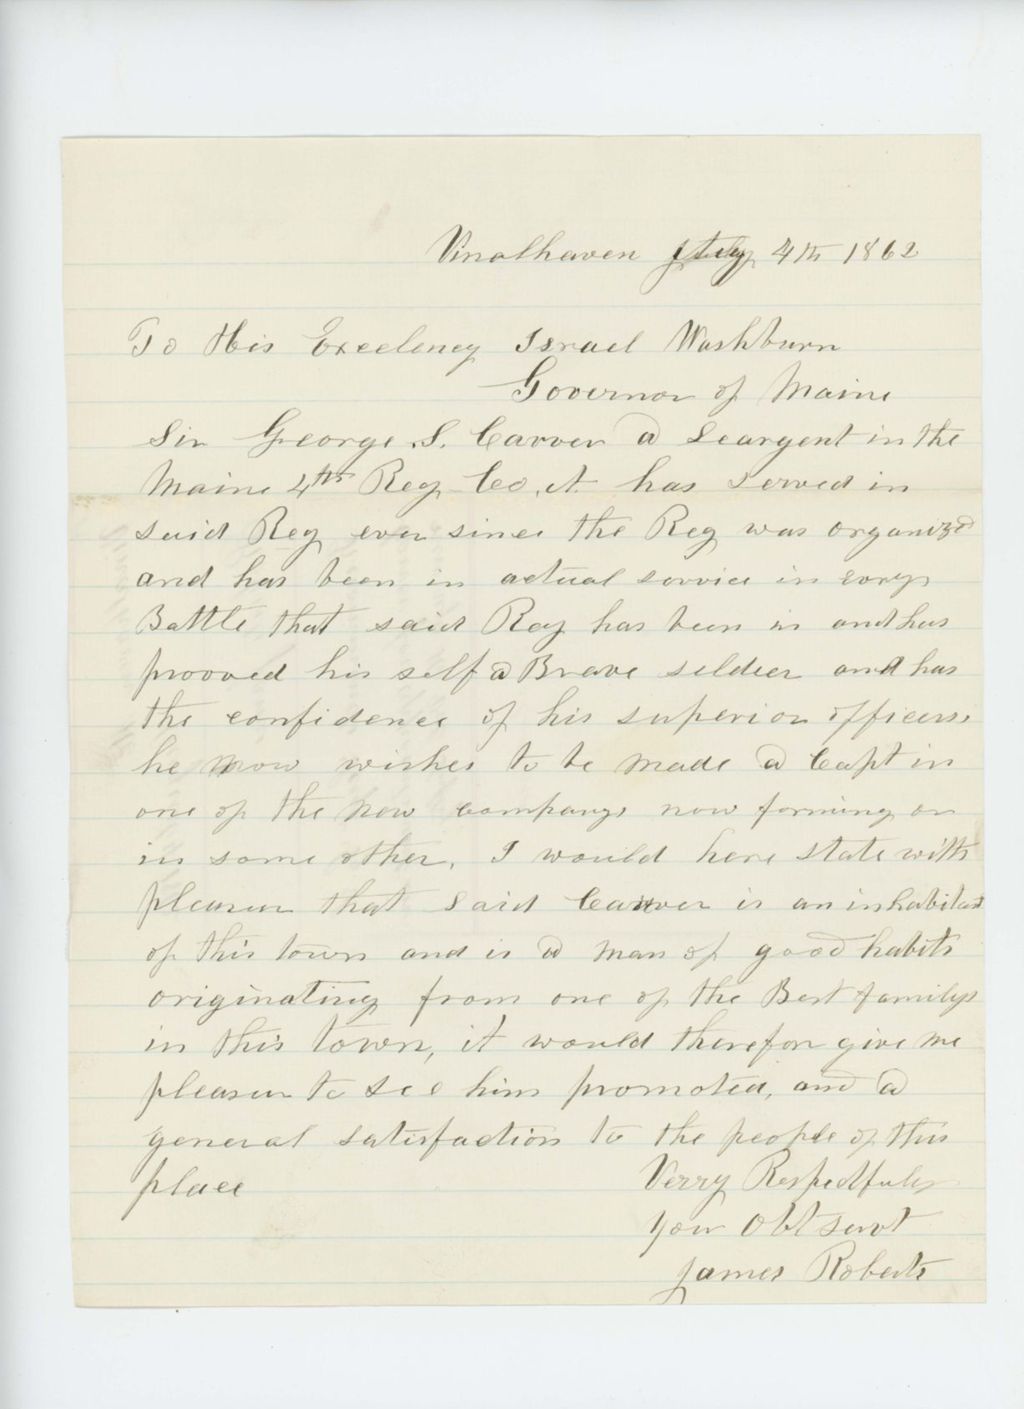 Vinalhaven July 4th 1862
To His Exeelency Israel Washburn
Governor of Maine
Sir George S. Carver a Seargent in the
Maine 4th Reg Co. A. has served in
said Reg ever since the Reg was organized
and has been in actual service in every
Battle that said Reg has been in and has
prooved his self a Brave soldier and has
the confidence of his superior officers.
he now wishes to be made a Capt in
one of the new companys now forming or
in some other, I would here state with
pleasur that said Carver is an inhabitant
of this town and is a man of good habits
originating from one of the Best familys
in this town, it would therefor give me
pleasur to see him promoted, and a
general satisfaction to the people of this
place Verry Respectfuly
your Obt Servt
James Roberts